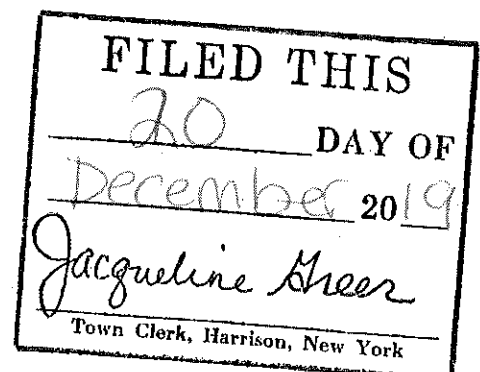 FILED THIS
20 DAY OF
December 2019
Jacqueline Greer
Town Clerk, Harrison, New York